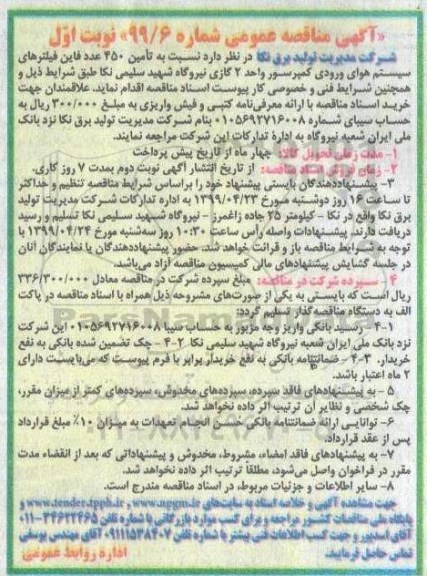 «آگهی مناقصه عمومی شماره ۹۹/۶» نوبت اوّل
شرکت مدیریت تولید برق نکا در نظر دارد نسبت به تأمین ۴۵۰ عدد فاین فیلترهای
سیستم هوای ورودی کمپرسور واحد ۲ گازی نیروگاه شهید سلیمی نکا طبق شرایط ذیل و
همچنین شرایط فنی و خصوصی کار پیوست اسناد مناقصه اقدام نماید. علاقمندان جهت
خرید اسناد مناقصه با ارائه معرفی‌نامه کتبی و فیش واریزی به مبلغ ۳۰۰/۰۰۰ ریال به
حساب سیبای شماره ۰۱۰۵۶۹۲۷۱۶۰۰۸ بنام شرکت مدیریت تولید برق نکا نزد بانک
ملی ایران شعبه نیروگاه به ادارهٔ تدارکات این شرکت مراجعه نمایند.
۱- مدت زمان تحویل کالا: چهار ماه از تاریخ پیش پرداخت
۲- زمان فروش اسناد مناقصه: از تاریخ انتشار آگهی نوبت دوم بمدت ۷ روز کاری.
۳- پیشنهاددهندگان بایستی پیشنهاد خود را براساس شرایط مناقصه تنظیم و حداکثر
تا ساعت ۱۶ روز دوشنبه مورخ ۱۳۹۹/۰۴/۲۳ به اداره تدارکات شرکت مدیریت تولید
برق نکا واقع در نکا - کیلومتر ۲۵ جاده زاغمرز - نیروگاه شهید سلیمی نکا تسلیم و رسید
دریافت دارند. پیشنهادات واصله رأس ساعت ۱۰:۳۰ روز سه‌شنبه مورخ ۱۳۹۹/۰۴/۲۴ با
توجه به شرایط مناقصه باز و قرائت خواهد شد. حضور پیشنهاددهندگان یا نمایندگان آنان
در جلسه گشایش پیشنهادهای مالی کمیسیون مناقصه آزاد می‌باشد.
۴- سپرده شرکت در مناقصه: مبلغ سپرده شرکت در مناقصه معادل ۳۳۶/۳۰۰/۰۰۰
ریال است که بایستی به یکی از صورت‌های مشروحه ذیل همراه با اسناد مناقصه در پاکت
الف به دستگاه مناقصه‌گذار تسلیم گردد:
۴-۱- رسید بانکی واریز وجه مزبور به حساب سیبا ۰۱۰۵۶۹۲۷۱۶۰۰۸ این شرکت
نزد بانک ملی ایران شعبه نیروگاه شهید سلیمی نکا ۴-۲- چک تضمین شده بانکی به نفع
خریدار. ۴-۳- ضمانتنامه بانکی به نفع خریدار برابر با فرم پیوست که می‌بایست دارای
۲ ماه اعتبار باشد.
۵- به پیشنهادهای فاقد سپرده، سپرده‌های مخدوش، سپرده‌های کمتر از میزان مقرر،
چک شخصی و نظایر آن ترتیب اثر داده نخواهد شد.
۶- توانایی ارائه ضمانتنامه بانکی حسن انجام تعهدات به میزان ۱۰٪ مبلغ قرارداد
پس از عقد قرارداد.
۷- به پیشنهادهای فاقد امضاء، مشروط، مخدوش و پیشنهاداتی که بعد از انقضاء مدت
مقرر در فراخوان واصل می‌شود، مطلقاً ترتیب اثر داده نخواهد شد.
۸- سایر اطلاعات و جزئیات مربوط، در اسناد مناقصه مندرج است.
جهت مشاهده آگهی و خلاصه اسناد به سایت‌های www.npgm.ir و www.tender.tpph.ir و
پایگاه ملی مناقصات کشور مراجعه و برای کسب موارد بازرگانی با شماره تلفن ۳۴۶۲۲۴۶۵-۰۱۱
آقای اسدپور و جهت کسب اطلاعات فنی بیشتر با شماره تلفن ۰۹۱۱۱۵۳۸۴۰۷ آقای مهندس یوسفی
تماس حاصل فرمایید.
اداره روابط عمومی